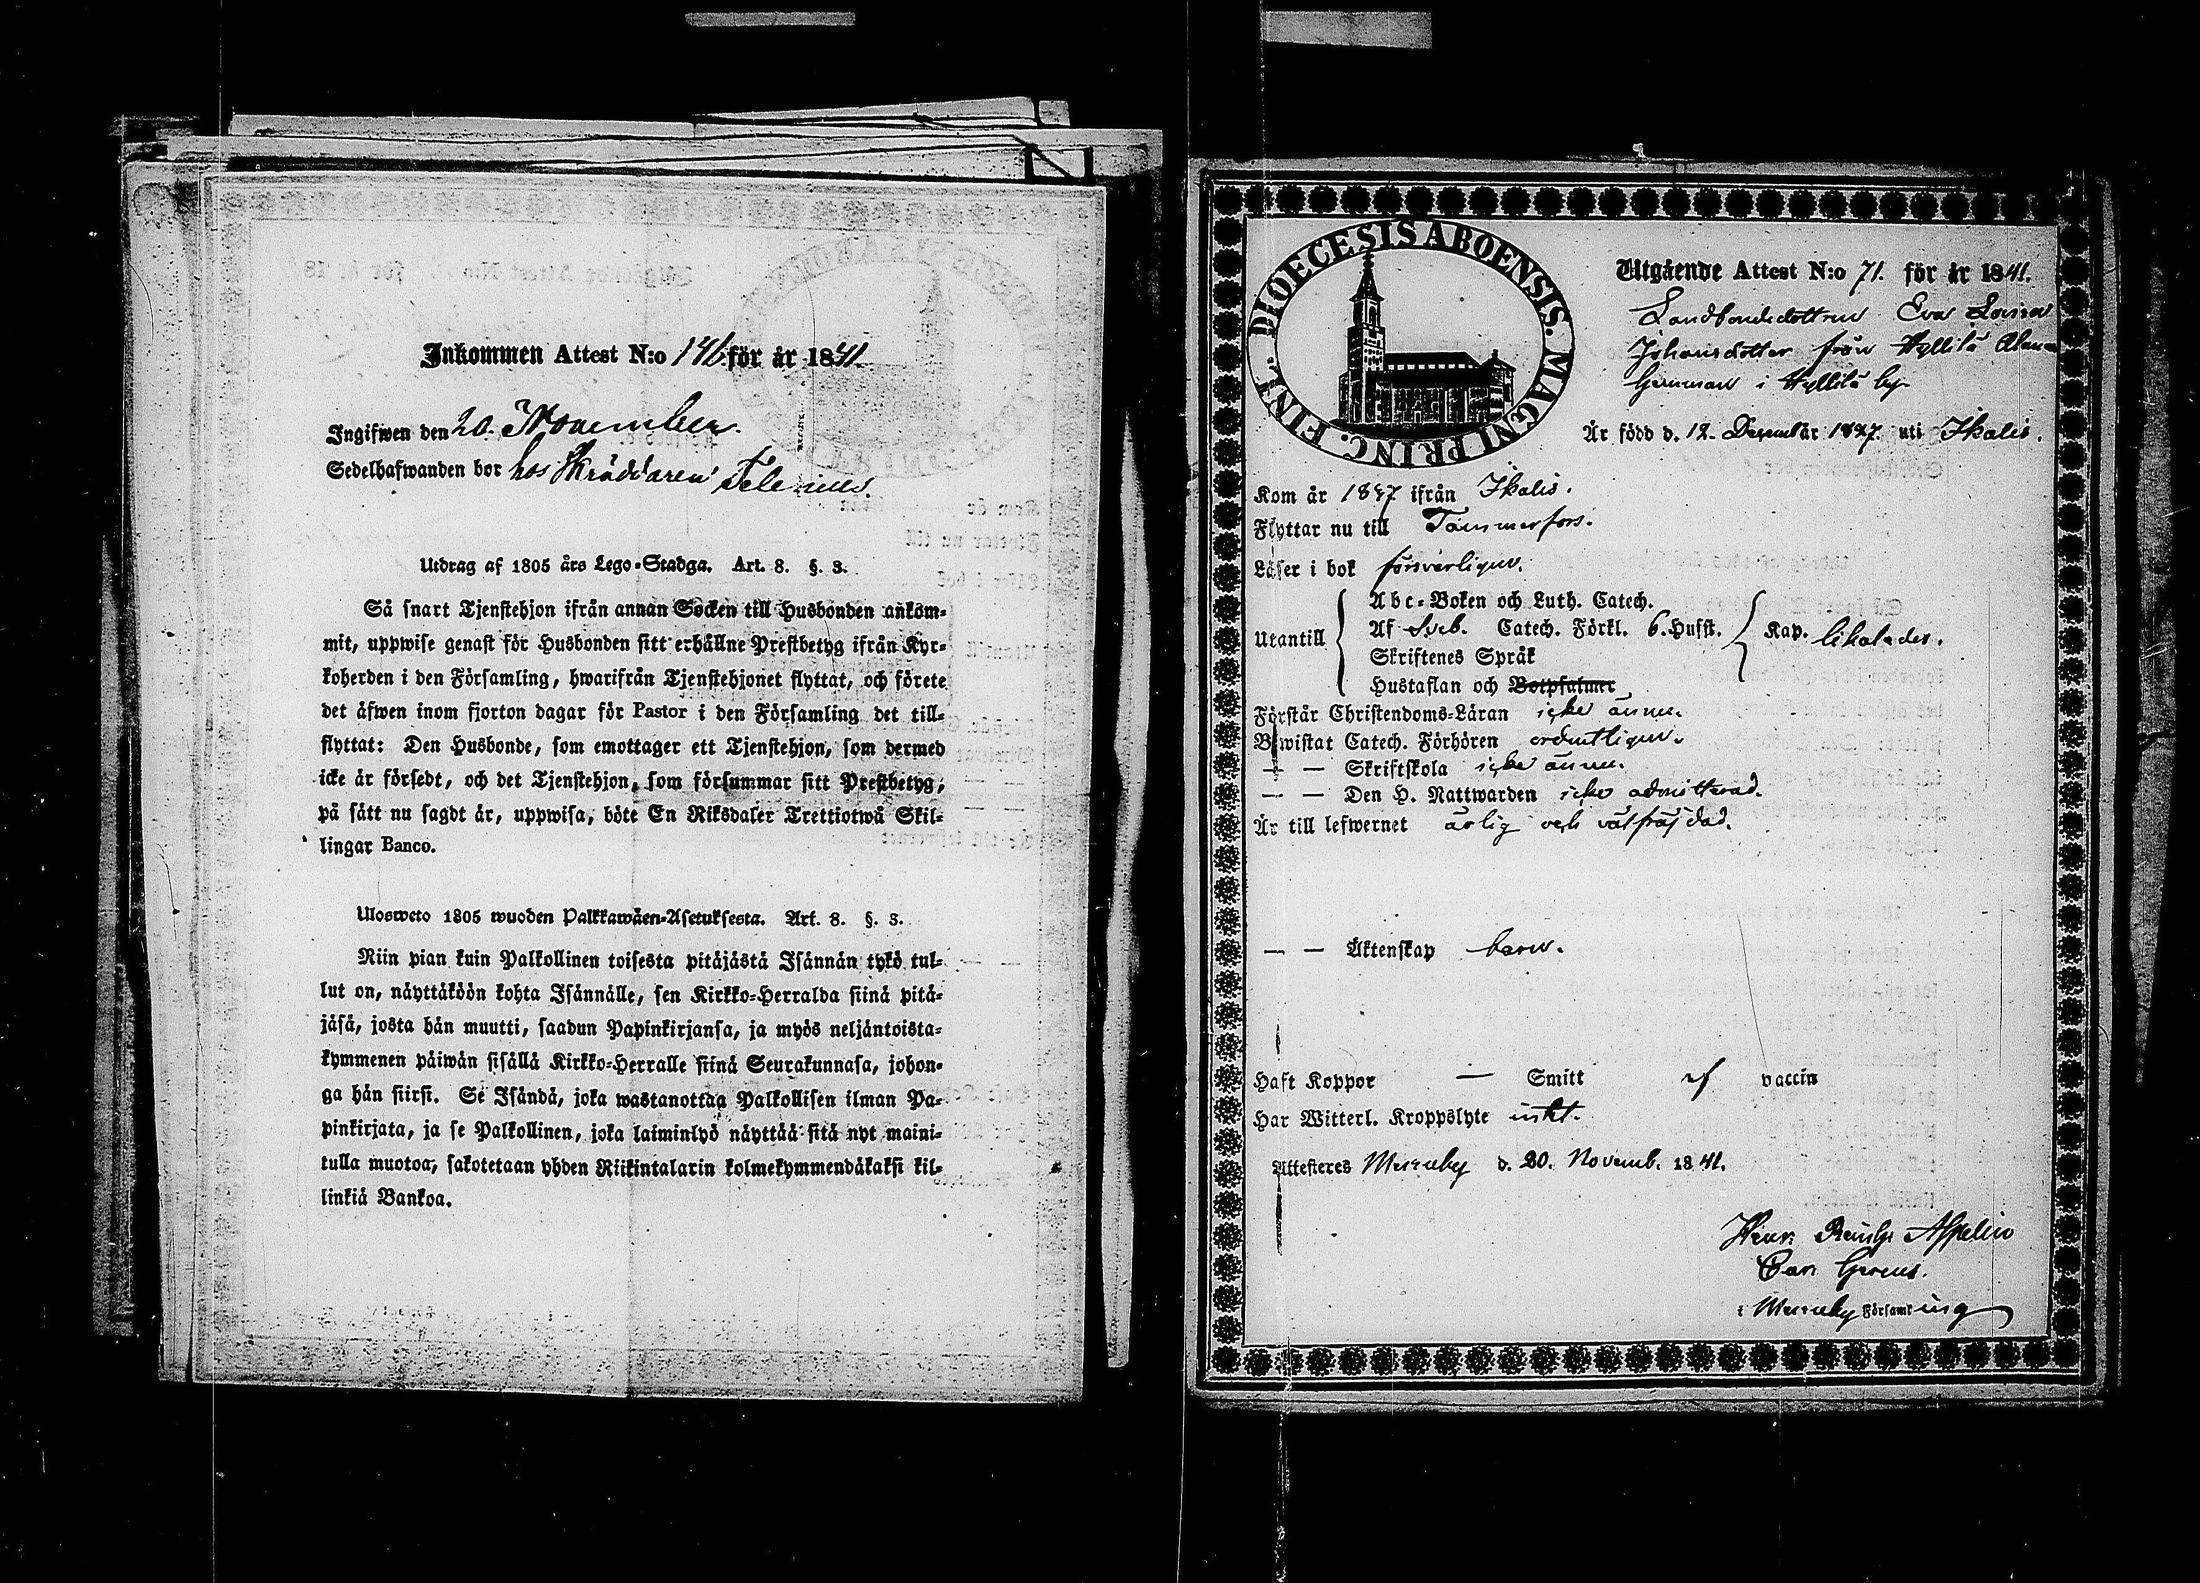 Inkommen Attest N:o 146. för år 1841.
Ingifwen den 20. November.
Sedelhafwanden bor hos Skräddaren
Utdrag af 1805 års Lego-Stadga. Art. 8. §. 3.
Så snart Tjenstehjon ifrån annan Socken till Husbonden ankom-
mit, uppwise genast för Husbonden sitt erhållne Prestbetyg ifrån Kyr-
koherden i den Församling, hwarifrån Tjenstehjonet flyttat, och förete
det äfwen inom fjorton dagar för Pastor i den Församling det till-
flyttat: Den Husbonde, som emottager ett Tjenstehjon, som dermed
icke är försedt, och det Tjenstehjon, som försummar sitt Prestbetyg,
på sätt nu sagdt är, uppwisa, böte En Riksdaler Trettiotwå Skil-
lingar Banco.
Ulosweto 1805 wuoden Palkkawäen-Asetuksesta. Art. 8. §. 3.
Niin pian kuin Palkollinen toisesta pitäjästä Isännän tykö tul-
lut on, näyttäköön kohta Isännälle, sen Kirkko-Herralda siinä pitä-
jäsä, josta hän muutti, saadun Papinkirjansa, ja myös neljäntoista-
kymmenen päiwän sisällä Kirkko-Herralle siinä Seurakunnasa, johon-
ga hän siirsi. Se Isändä, joka wastanottaa Palkollisen ilman Pa-
pinkirjata, ja se Palkollinen, joka laiminlyö näyttää sitä nyt maini-
tulla muotoa, sakotetaan yhden Riikintalarin kolmekymmendäkaksi kil-
linkiä Bankoa.
DIOECESIS ABOENSIS. MAGNI PRINC. FINL.
Utgående Attest N:o 71. för år 1841.
Landbondedottren Eva Lovisa
Johansdotter från Hyllilä
i Hyllilä by
Är född d. 12. December 1827. uti Ikalis.
Kom år 1837 ifrån Ikalis.
Flyttar nu till Tammerfors.
Läser i bok försvarligen.
Abc-Boken och Luth. Catech.
Utantill Af Sveb. Catech. Förkl. 6. Hufst. Kap.
Skriftenes Språk
Hustaflan och Botpsalmer
Förstår Christendoms-Läran icke ännu.
Bewistat Catech. Förhören ordentligen.
— — Skriftskola icke ännu.
— — Den H. Nattwarden icke admitterad.
Är till lefwernet ärlig och välfräjdad.
— — Äktenskap barn.
Haft Koppor — Smitt af vaccin
Har Witterl. Kroppslyte intet.
Attesteres Messuby d. 20. Novemb. 1841.
Henr. Aspelin
i Messuby Församling